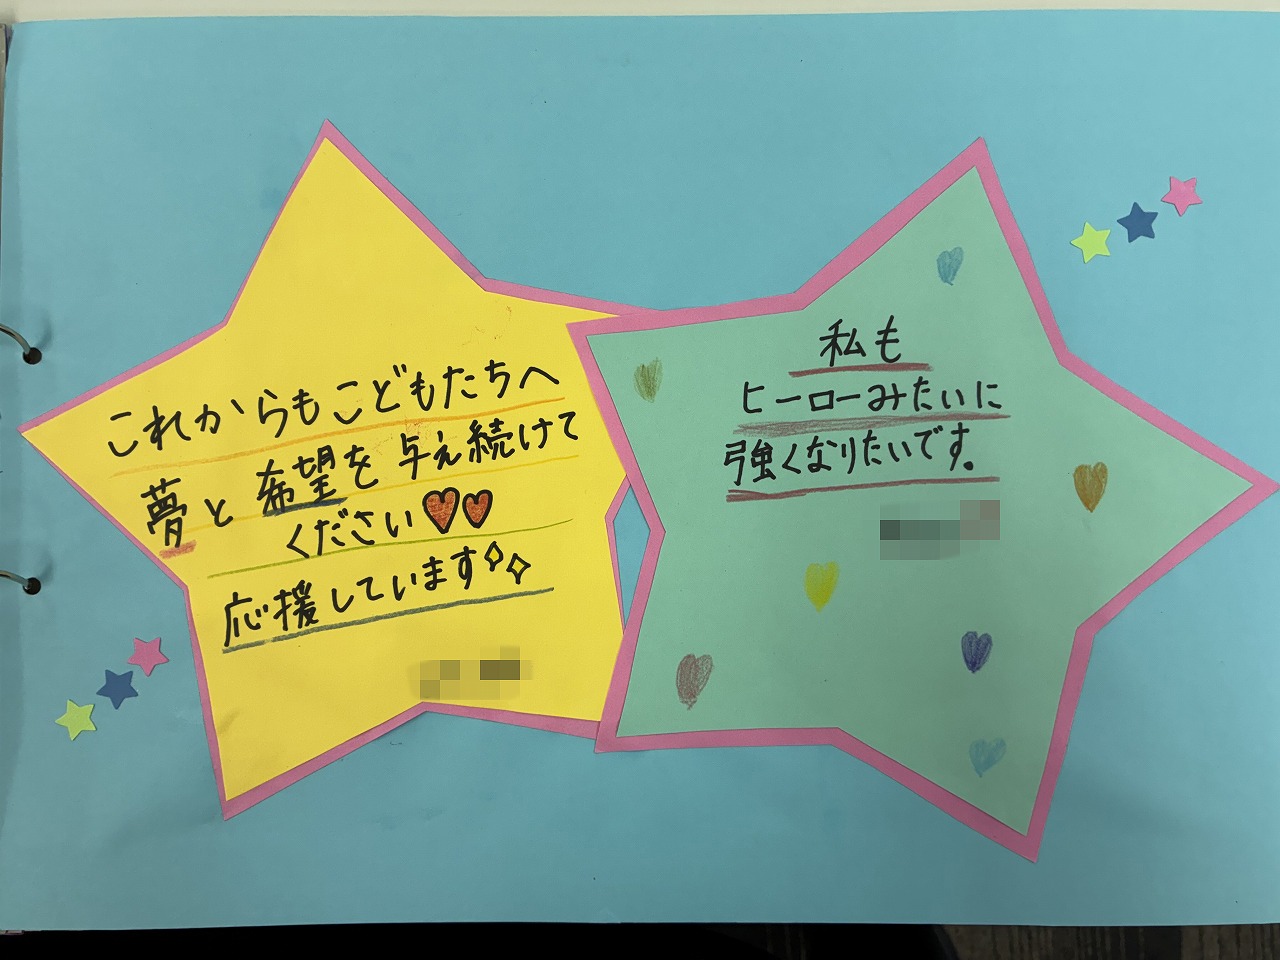 これからもこどもたちへ
夢と希望を与え続けて
ください
応援しています
私も
ヒーローみたいに
強くなりたいです。